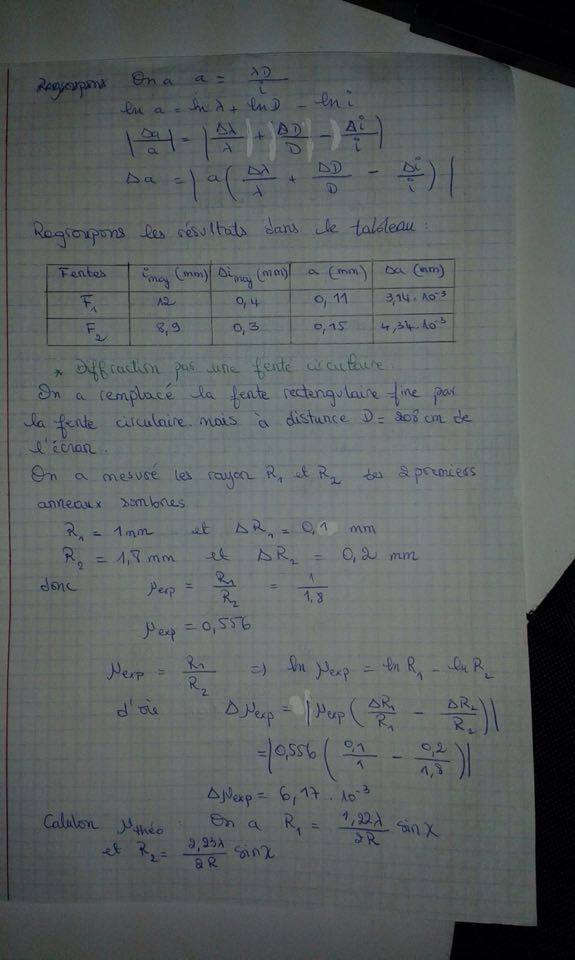 Regroupons On a a = λD/i
ln a = ln λ + ln D - ln i
|Δa/a| = |Δλ/λ + ΔD/D - Δi/i|
Δa = |a(Δλ/λ + ΔD/D - Δi/i)|
Regroupons les résultats dans le tableau :
Fentes | i moy (mm) | Δi moy (mm) | a (mm) | Δa (mm)
F1 | 12 | 0,4 | 0,11 | 3,14.10⁻³
F2 | 8,9 | 0,3 | 0,15 | 4,34.10⁻³
* Diffraction par une fente circulaire.
On a remplacé la fente rectengulaire fine par
la fente circulaire. mais à distance D = 208 cm de
l'écran.
On a mesuré les rayon R1 et R2 des 2 premiers
anneaux sombres
R1 = 1 mm et ΔR1 = 0,1 mm
R2 = 1,8 mm et ΔR2 = 0,2 mm
donc μexp = R1/R2 = 1/1,8
μexp = 0,556
μexp = R1/R2 => ln μexp = ln R1 - ln R2
d'où Δμexp = |μexp(ΔR1/R1 - ΔR2/R2)|
= |0,556(0,1/1 - 0,2/1,8)|
Δμexp = 6,17.10⁻³
Calulon μthéo : On a R1 = 1,22λ/2R sin χ
et R2 = 2,23λ/2R sin χ